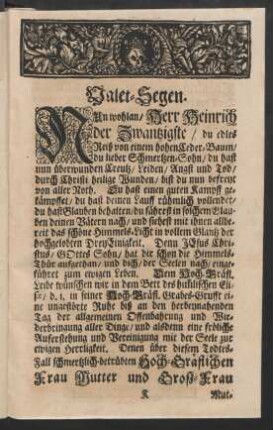 Valet-Segen.
NUn wohlan / Herr Heinrich
der Zwantzigste / du edles
Reiß von einem hohen Ceder-Baum /
du lieber Schmertzen-Sohn / du hast
nun überwunden Creutz / Leiden / Angst und Tod /
durch Christi heilige Wunden / bist du nun befreyt
von aller Noth. Du hast einen guten Kampff ge-
kämpffet / du hast deinen Lauff rühmlich vollendet /
du hast Glauben behalten / du fährest in solchem Glau-
ben deinen Vätern nach / und siehest mit ihnen allbe-
reit das schöne Himmels-Licht in vollem Glantz der
hochgelobten Drey-Einigkeit. Denn JEsus Chri-
stus / GOttes Sohn / hat dir schon die Himmels-
Thür aufgethan / und dich / der Seelen nach / einge-
führet zum ewigen Leben. Dem Hoch-Gräfl.
Leibe wünschen wir in dem Bett des Eli-
sä / d. i. in seiner Hoch-Gräfl. Grabes-Grufft eine
ungestörte Ruhe bis an den herbeynahenden
Tag der allgemeinen Offenbahrung und Wie-
derbringung aller Dinge / und alsdenn eine fröliche
Auferstehung und Vereinigung mit der Seele zur
ewigen Herrligkeit. Denen über diesem Todes-
Fall schmertzlich-betrübten Hoch-Gräflichen
Frau Mutter und Groß-Frau
K Mut-